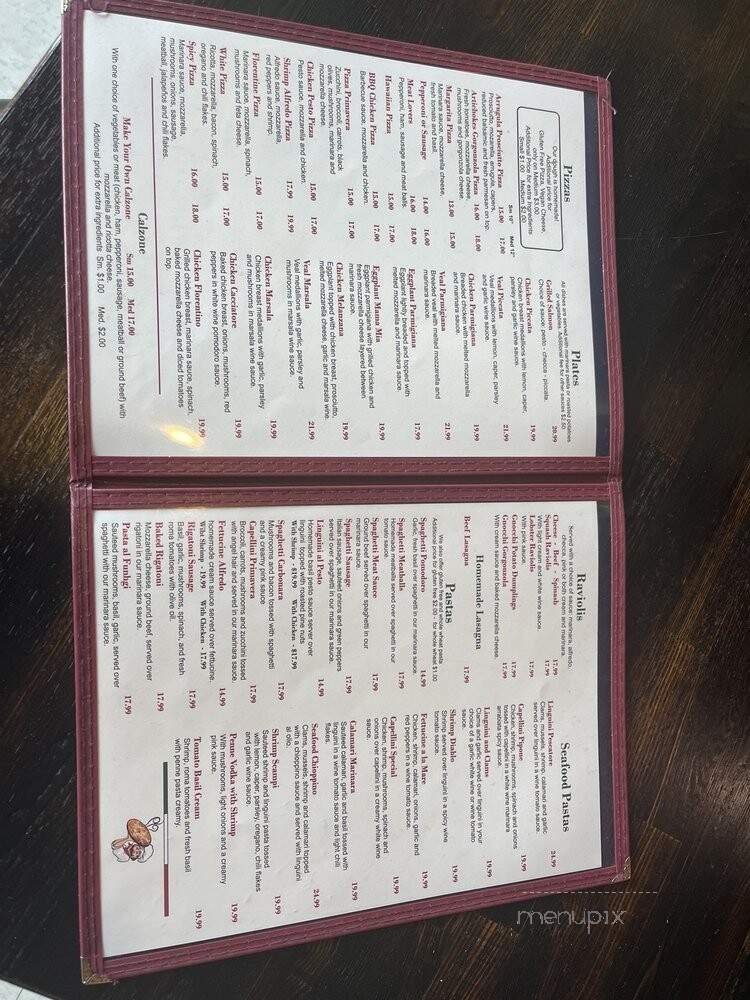 Pizzas
Our dough is homemade!
Additional price for
Gluten Free Pizza, Vegan Cheese,
only on Medium $3.00
Additional Price for extra Ingredients
Small $1.00 Medium $2.00
Sm 10" Med 12"
Arrugula Prosciutto Pizza 15.00 17.00
Prosciutto, mozzarella, arrugula, capers,
reduced balsamic and fresh parmesan on top.
Artichokes Gorgonzola Pizza 16.00 18.00
Fresh tomatoes, mozzarella cheese,
mushrooms and gorgonzola cheese.
Margarita Pizza 13.00 15.00
Marinara sauce, mozzarella cheese,
fresh tomato and basil.
Pepperoni or Sausage 14.00 16.00
Meat Lovers 16.00 18.00
Pepperoni, ham, sausage and meat balls.
Hawaiian Pizza 15.00 17.00
BBQ Chicken Pizza 15.00 17.00
Barbecue sauce, mozzarella and chicken.
Pizza Primavera 15.00 17.00
Zucchini, broccoli, carrots, black
olives, mushrooms, marinara and
mozzarella cheese.
Chicken Pesto Pizza 15.00 17.00
Pesto sauce, mozzarella and chicken.
Shrimp Alfredo Pizza 17.99 19.99
Alfredo sauce, mozzarella,
red peppers and shrimp.
Florentine Pizza 15.00 17.00
Marinara sauce, mozzarella, spinach,
mushrooms and feta cheese.
White Pizza 15.00 17.00
Ricotta, mozzarella, bacon, spinach,
oregano and chili flakes.
Spicy Pizza 16.00 18.00
Marinara sauce, mozzarella,
mushrooms, onions, sausage,
meatball, jalapeños and chili flakes.
Plates
All dishes are served with marinara pasta or roasted potatoes
or vegetables - Additional fee for other sauces $2.50
Grilled Salmon 20.99
Choice of sauce: pesto - checca - piccata.
Chicken Piccata 19.99
Chicken breast medallions with lemon, caper,
parsley and garlic wine sauce.
Veal Piccata 21.99
Veal medallions with lemon, caper, parsley
and garlic wine sauce.
Chicken Parmigiana 19.99
Breaded chicken with melted mozzarella
and marinara sauce.
Veal Parmigiana 21.99
Breaded veal with melted mozzarella and
marinara sauce.
Eggplant Parmigiana 17.99
Eggplant lightly breaded and topped with
melted mozzarella and marinara sauce.
Eggplant Mama Mia 19.99
Eggplant parmigiana with grilled chicken and
fresh mozzarella cheese layered between
marinara sauce.
Chicken Melanzana 19.99
Eggplant topped with chicken breast, prosciutto,
melted mozzarella cheese, garlic and marsala wine.
Veal Marsala 21.99
Veal medallions with garlic, parsley and
mushrooms in marsala wine sauce.
Chicken Marsala 19.99
Chicken breast medallions with garlic, parsley
and mushrooms in marsala wine sauce.
Chicken Cacciatore 19.99
Baked chicken breast, onions, mushrooms, red
peppers in white wine pomodoro sauce.
Chicken Florentino 19.99
Grilled chicken breast, marinara sauce, spinach,
baked mozzarella cheese and diced tomatoes
on top.
Calzone
Make Your Own Calzone Sm 15.00 Med 17.00
With one choice of vegetables or meat (chicken, ham, pepperoni, sausage, meatball or ground beef) with
mozzarella and ricotta cheese.
Additional price for extra ingredients Sm. $1.00 Med. $2.00
Raviolis
Served with a choice of sauce: marinara, alfredo,
checca, pink or both cream and marinara.
Cheese - Beef - Spinash 17.99
Squash Raviolis 17.99
With light cream our white wine sauce.
Lobster Raviolis 17.99
With pink sauce.
Gnocchi Potato Dumplings 17.99
Gnocchi Gorgonzola 17.99
With cream sauce and baked mozzarella cheese.
Homemade Lasagna
Beef Lasagna 17.99
Pastas
We also offer gluten free and whole wheat pasta
Additional price for gluten free $2.00 - for whole wheat $1.00
Spaghetti Pomodoro 14.99
Garlic, fresh basil over spaghetti in our marinara sauce.
Spaghetti Meatballs 17.99
Homemade meatballs served over spaghetti in our
tomato sauce.
Spaghetti Meat Sauce 17.99
Ground beef served over spaghetti in our
marinara sauce.
Spaghetti Sausage 17.99
Italian sausage, sautéed onions and green peppers
served over spaghetti in our marinara sauce.
Linguini al Pesto 14.99
Homemade basil pesto sauce server over
linguini topped with roasted pine nuts
With Shrimp - $19.99 With Chicken - $17.99
Spaghetti Carbonara 17.99
Mushrooms and bacon tossed with spaghetti
and a creamy pink sauce
Capellini Primavera 17.99
Broccoli, carrots, mushrooms and zucchini tossed
with angel hair and served in our marinara sauce.
Fettucine Alfredo 14.99
homemade cream sauce served over fettucine.
Wiht Shrimp - 19.99 With Chicken - 17.99
Rigatoni Sausage 17.99
Basil, garlic, mushrooms, spinach, and fresh
roma tomatoes with olive oil.
Baked Rigatoni 17.99
Mozzarella cheese, ground beef, served over
rigatoni in our marinara sauce.
Pasta al Funhgi 17.99
Sauteed mushrooms, basil, garlic, served over
spaghetti with our marinara sauce.
Seafood Pastas
Linguini Pescatore 24.99
Clams, mussels, shrimp, calamari and garlic,
served over linguini in a wine tomato sauce.
Capellini Pepone 19.99
Chicken, shrimp, mushrooms, spinach and onions
tossed with capellini in a white wine marinara
arrabiata spicy sauce.
Linguini and Clams 19.99
Clams and garlic, served over linguini in your
choice of a garlic white wine or wine tomato
sauce.
Shrimp Diablo 19.99
Shrimp served over linguini in a spicy wine
tomato sauce.
Fettucine a la Mare 19.99
Chicken, shrimp, calamari, onions, garlic and
red peppers in a wine tomato sauce.
Capellini Special 19.99
Chicken, shrimp, mushrooms, spinach and
onions over capellini in a creamy white wine
sauce.
Calamari Marinara 19.99
Sauteed calamari, garlic and basil tossed with
linguini in a wine tomato sauce and light chili
flakes.
Seafood Chioppino 24.99
Clams, mussels, shrimp and calamari topped
with a choppino sauce and served with linguini
al olio.
Shrimp Scampi 19.99
Sauteed shrimp and linguini pasta tossed
with lemon, caper, parsley, oregano, chili flakes
and garlic wine sauce.
Penne Vodka with Shrimp 19.99
With mushrooms, light onions and a creamy
pink sauce.
Tomato Basil Cream 19.99
Shrimp, roma tomatoes and fresh basil
with penne pasta creamy.
menupix